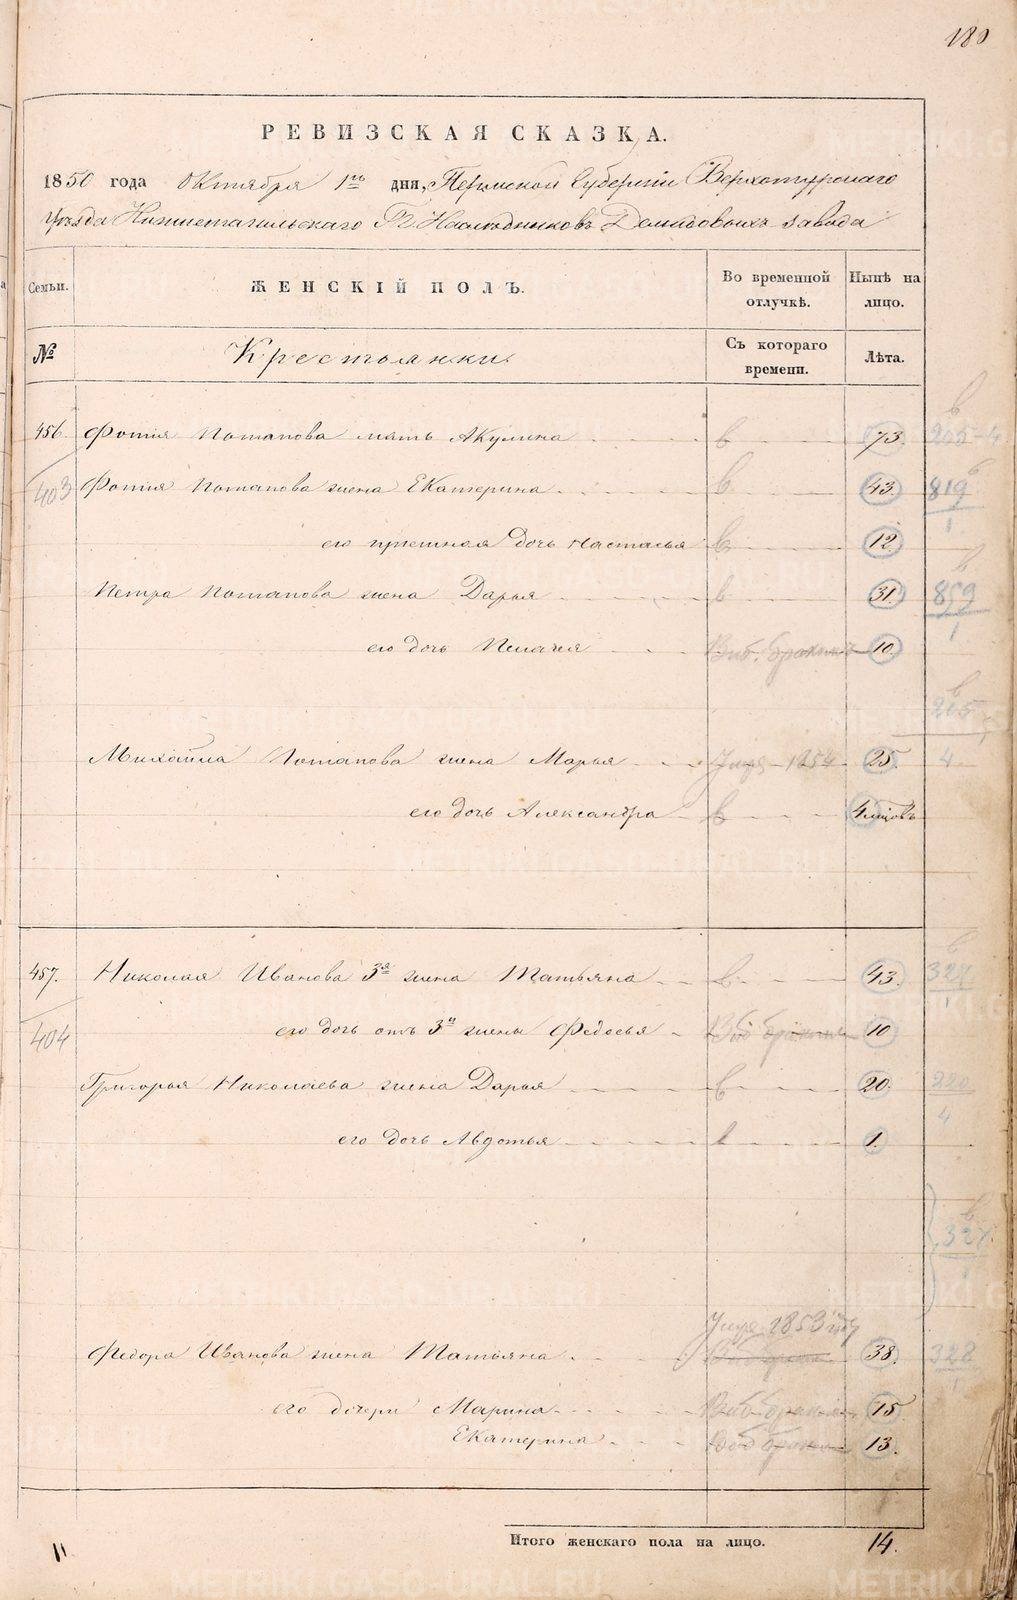 180
РЕВИЗСКАЯ СКАЗКА.
1850 года Октября 1го дня, Пермской Губернии Верхотурскаго
Уезда Нижнетагильскаго Г. Наследниковъ Демидовыхъ завода
Семьи. ЖЕНСКІЙ ПОЛЪ. Во временной отлучкѣ. Нынѣ на лицо.
№ Крестьянки. Съ котораго времени. Лѣта.
456. Фотія Потапова мать Акулина в 73. 205-4
403 Фотія Потапова жена Екатерина в 43. 819/1
его приемная дочь Настасья в 12
Петра Потапова жена Дарья в 31. 859/1
его дочь Пелагея 10.
205
Михайла Потапова жена Марья 1854 25. 4
его дочь Александра в 4 мцовъ
457. Николая Иванова 3я жена Татьяна в 43. 327/1
404 его дочь отъ 3й жены Федосья 10
Григорья Николаева жена Дарья в 20. 220/4
его дочь Авдотья в 1.
327/1
1853 году
Федора Иванова жена Татьяна 38. 328/1
его дочери Марина 15
Екатерина 13.
Итого женскаго пола на лицо. 14.
METRIKI.GASO-URAL.RU